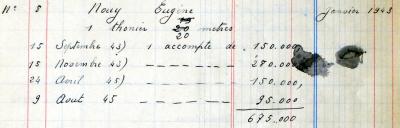 N° 8 Nouy Eugène janvier 1943
1 thonier 20 metres
20
15 Septembre 43) 1 accompte de 150.000
15 Novembre 43) 280.000
24 Avril 45) 150.000,
9 Aout 45 95.000
675.000